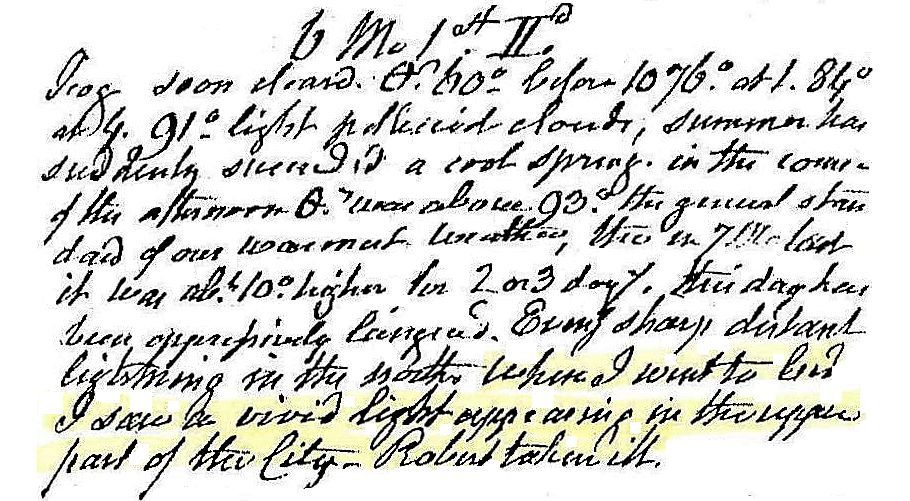 6 Mo 1st II.d
Fog soon cleard. θ.r 60° before 10 76° at 1. 84°
at 4. 91° light pellucid clouds, summer has
suddenly succeed'd a cool spring. in the course
of the afternoon θ.r was above 93° the general stan
dard of our warmest weather, tho in 7 Mo last
it was ab.t 10° higher for 2 or 3 days. this day has
been oppressively languid. Even'g sharp distant
lightning in the north. When I went to bed
I saw a vivid light appearing in the upper
part of the City - Robert taken ill.